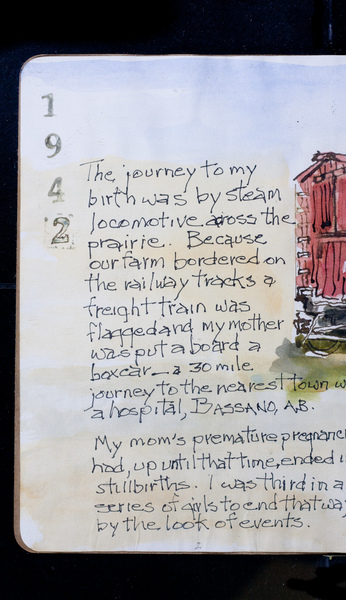 1942
The journey to my
birth was by steam
locomotive across the
prairie. Because
our farm bordered on
the railway tracks a
freight train was
flagged and my mother
was put aboard a
boxcar—a 30 mile
journey to the nearest town w
a hospital, BASSANO, AB.
My mom's premature pregnanc
had, up until that time, ended i
stillbirths. I was third in a
series of girls to end that way
by the look of events.